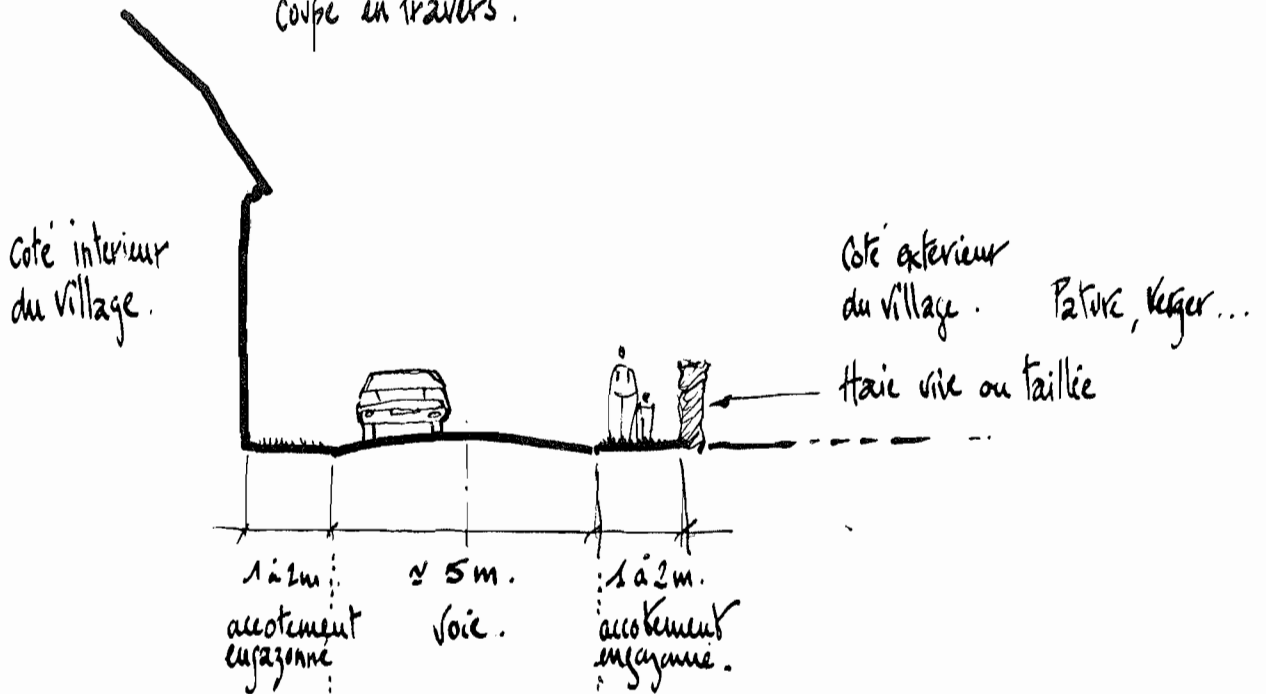 Coupe en travers.
Coté interieur
du village.
Coté exterieur
du village. Pature, verger...
Haie vive ou taillée
1 à 2m.
accotement
engazonné
≈ 5m.
voie.
1 à 2m.
accotement
engazonné.